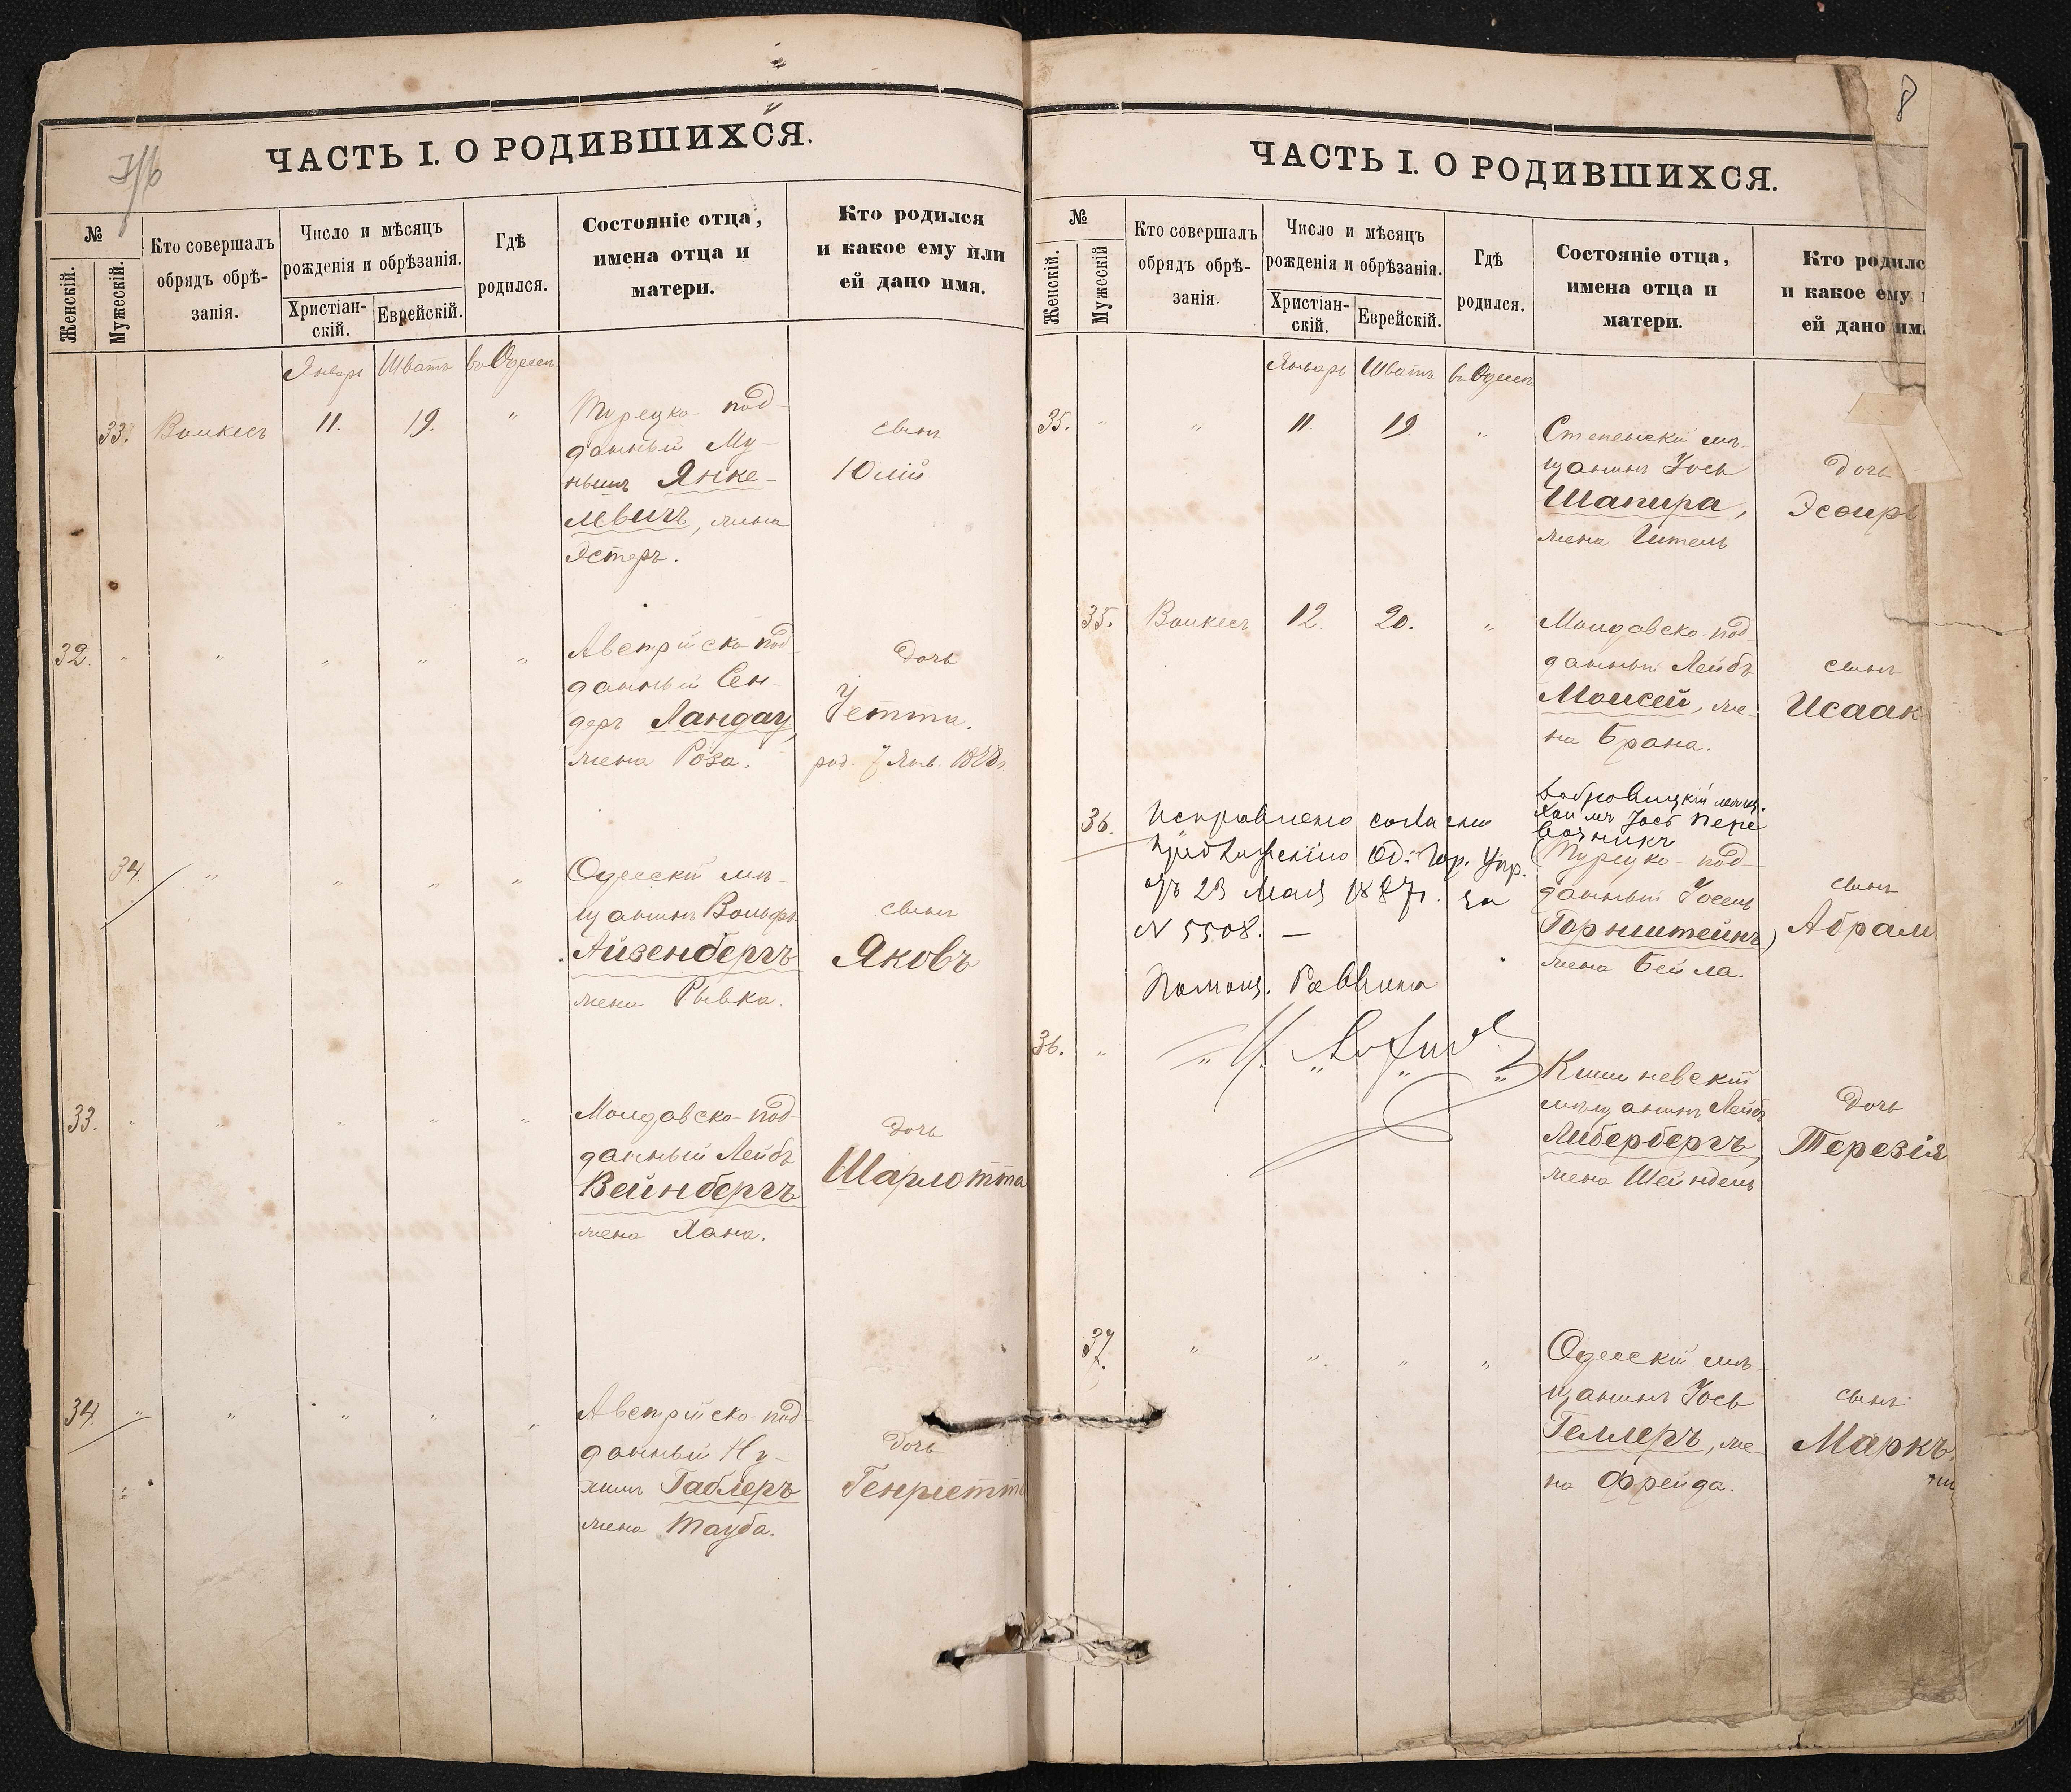 ЧАСТЬ I. О РОДИВШИХСЯ.
№
Женскій.
Мужескій.
Кто совершалъ
обрядъ обрѣ-
занія.
Число и мѣсяцъ
рожденія и обрѣзанія.
Христіан-
скій.
Еврейскій.
Гдѣ
родился.
Состояніе отца,
имена отца и
матери.
Кто родился
и какое ему или
ей дано имя.
Январь Шватъ въ Одессѣ
33. 11. 19. "
Турецко-под-
данный Му-
нышъ Янке-
левичъ, жена
Эстеръ.
сынъ
Юлій
32. " " " " "
Австрійско-под-
данный Сен-
деръ Ландау,
жена Роза.
дочь
Іетта.
род. 7 Янв.
34. " " " "
Одесскій мѣ-
щанинъ Вольфъ
Айзенбергъ
жена Рывка.
сынъ
Яковъ
33. " " " " "
Молдавско-под-
данный Лейбъ
Вейнбергъ
жена Хана.
дочь
Шарлотта
34. " " " " "
Австрійско-под-
данный Ну-
химъ Габлеръ
жена Тауба.
дочь
Генріетта
8
ЧАСТЬ I. О РОДИВШИХСЯ.
№
Женскій.
Мужескій
Кто совершалъ
обрядъ обрѣ-
занія.
Число и мѣсяцъ
рожденія и обрѣзанія.
Христіан-
скій.
Еврейскій.
Гдѣ
родился.
Состояніе отца,
имена отца и
матери.
Кто родилс
и какое ему
ей дано им
Январь Шватъ въ Одессѣ
35. " " 11 19 "
Степенскій мѣ-
щанинъ Іось
Шапира,
жена Гитель
дочь
Эсѳирь
35. 12. 20. "
Молдавско-под-
данный Лейбъ
Моисей, же-
на Брана.
сынъ
Исаакъ
36. Исправлено согласно
предложенію Од. Гор. Упр.
отъ 23 Мая 1887 г. за
N 5508. —
Помощ. Раввина
Хаимъ Іось Пере
возникъ
(Турецко-под-
данный Іосель
Горнштейнъ)
жена Бейла.
сынъ
Абрам
36. " " " " "
Кишиневскій
мѣщанинъ Лейбъ
Либербергъ,
жена Шейндель
дочь
Терезія
37. " " " "
Одесскій мѣ-
щанинъ Іось
Геллеръ, же-
на Фрейда.
сынъ
Маркъ